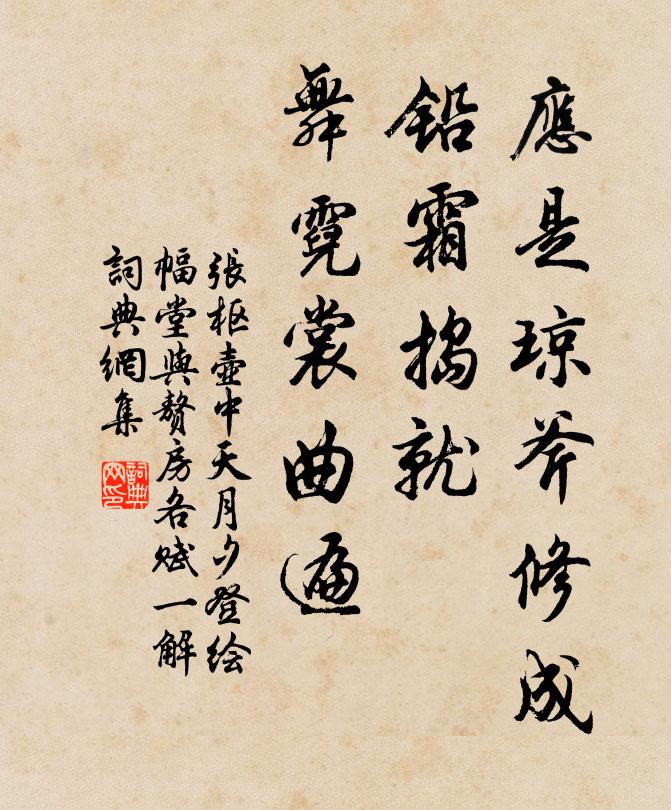 應是琼斧修成
鉛霜搗就
舞霓裳曲遍
張枢壷中天月夕登绘
幅堂與贅房各赋一解
詞典網集
詞典
网印